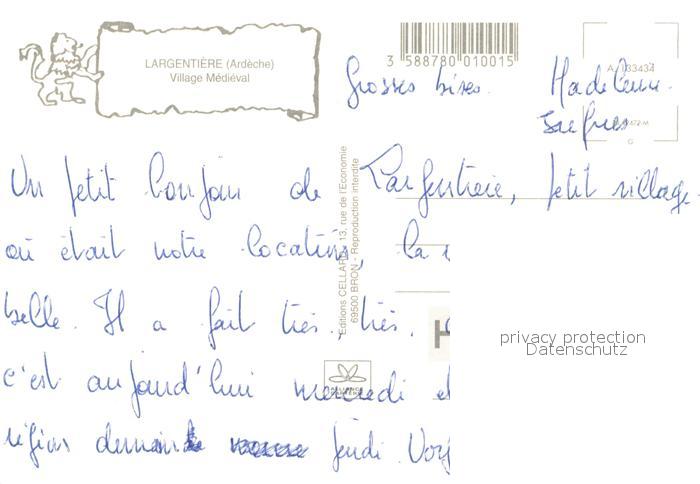 LARGENTIÈRE (Ardèche)
Village Médiéval
3 588780 010015
A 133434
Grosses bises. Madeleine.
Jacques
Un petit bonjour de Largentière, petit village
où était notre location, la
belle. Il a fait très, très,
c'est aujourd'hui mercredi et
demain jeudi.
Editions CELLARD - 13, rue de l'Economie
69500 BRON - Reproduction interdite
privacy protection
Datenschutz